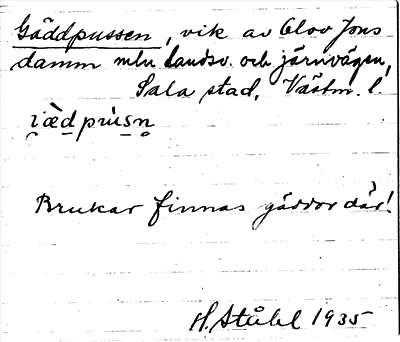 Gäddpussen, vik av Olov Jons
damm mln landsv. och järnvägen,
Sala stad, Västm. l.
i̯æ̀dpúsn̥
Brukar finnas gäddor där!
H. Ståhl 1935